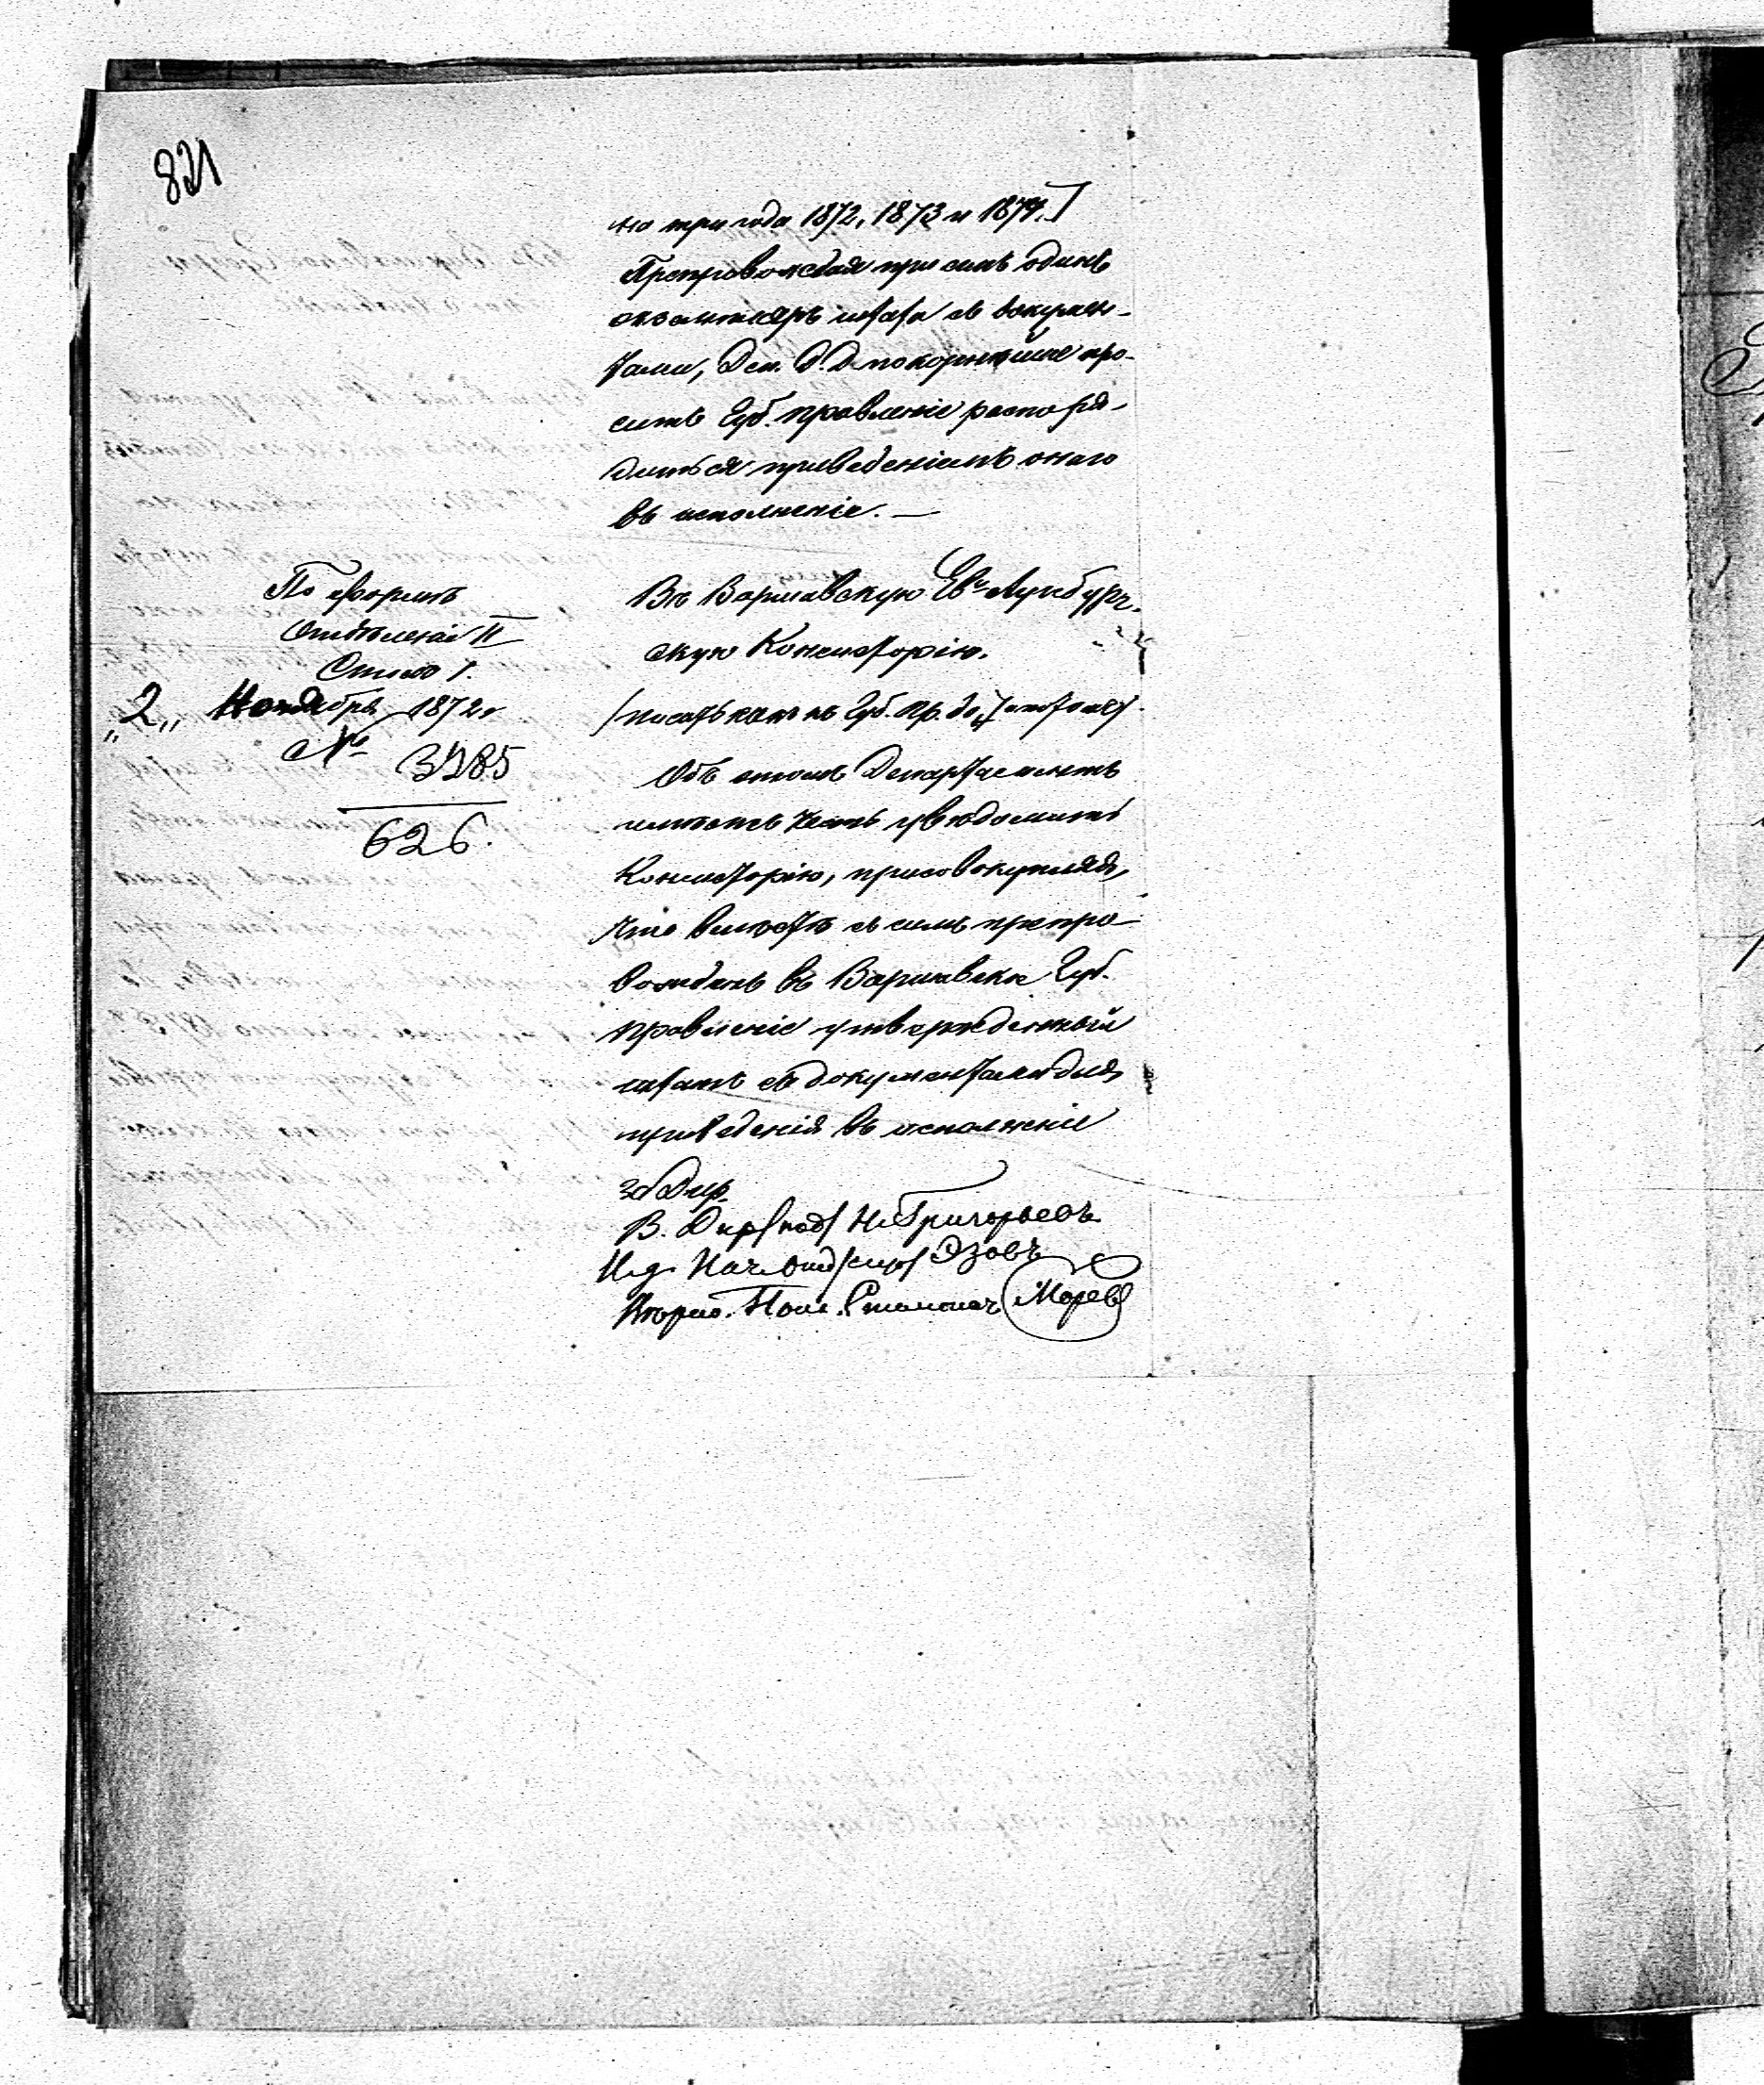 821
на три года 1872, 1873 и 1874.]
Препровождая при семъ одинъ
экземпляръ штата съ докумен-
тами, Деп. Д. Д. покорнѣйше про-
ситъ Губ. Правленіе распоря-
диться приведеніемъ онаго
въ исполненіе. —
По формѣ
Отдѣленія II
Столъ I.
„2„ Ноября 1872 г.
№ 3785
626.
Въ Варшавскую Ев. Аугсбург-
скую Консисторію.
/писать какъ въ Губ. Пр. до
Объ этомъ Департаментъ
имѣетъ честь увѣдомить
Консисторію, присовокупляя,
что вмѣстѣ съ симъ препро-
вожденъ въ Варшавское Губ.
Правленіе утвержденный
штатъ съ документами для
приведенія въ исполненіе
за Дир.
В. Дир /под/ Н. Григорьевъ
И. д. Нач. Отд /скр/ Эзовъ
Вѣрно. Пом. Столонач. Моревъ